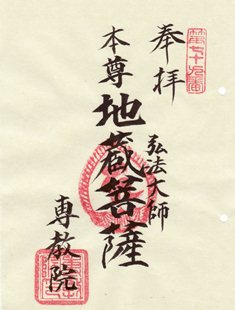 奉拝
第七十九番
弘法大師
本尊
地蔵菩薩
専教院